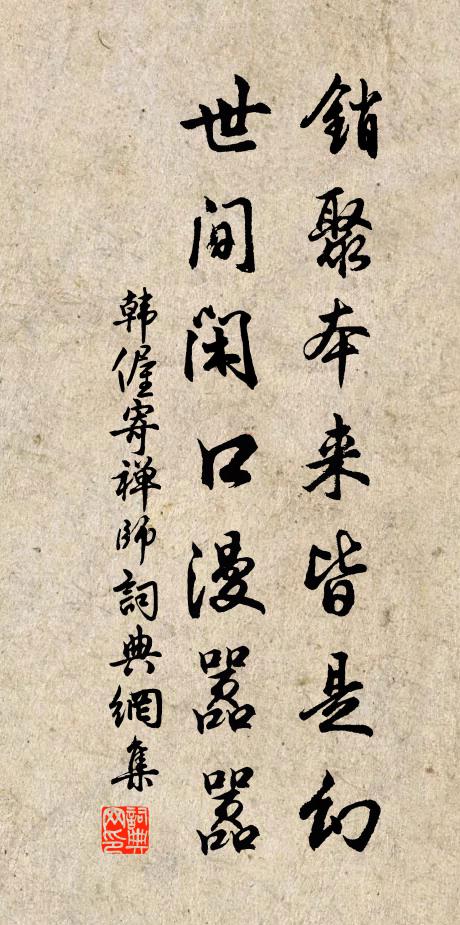 銷聚本来皆是幻
世间闲口漫嚣嚣
韩偓寄禅师詞典網集
詞典网印